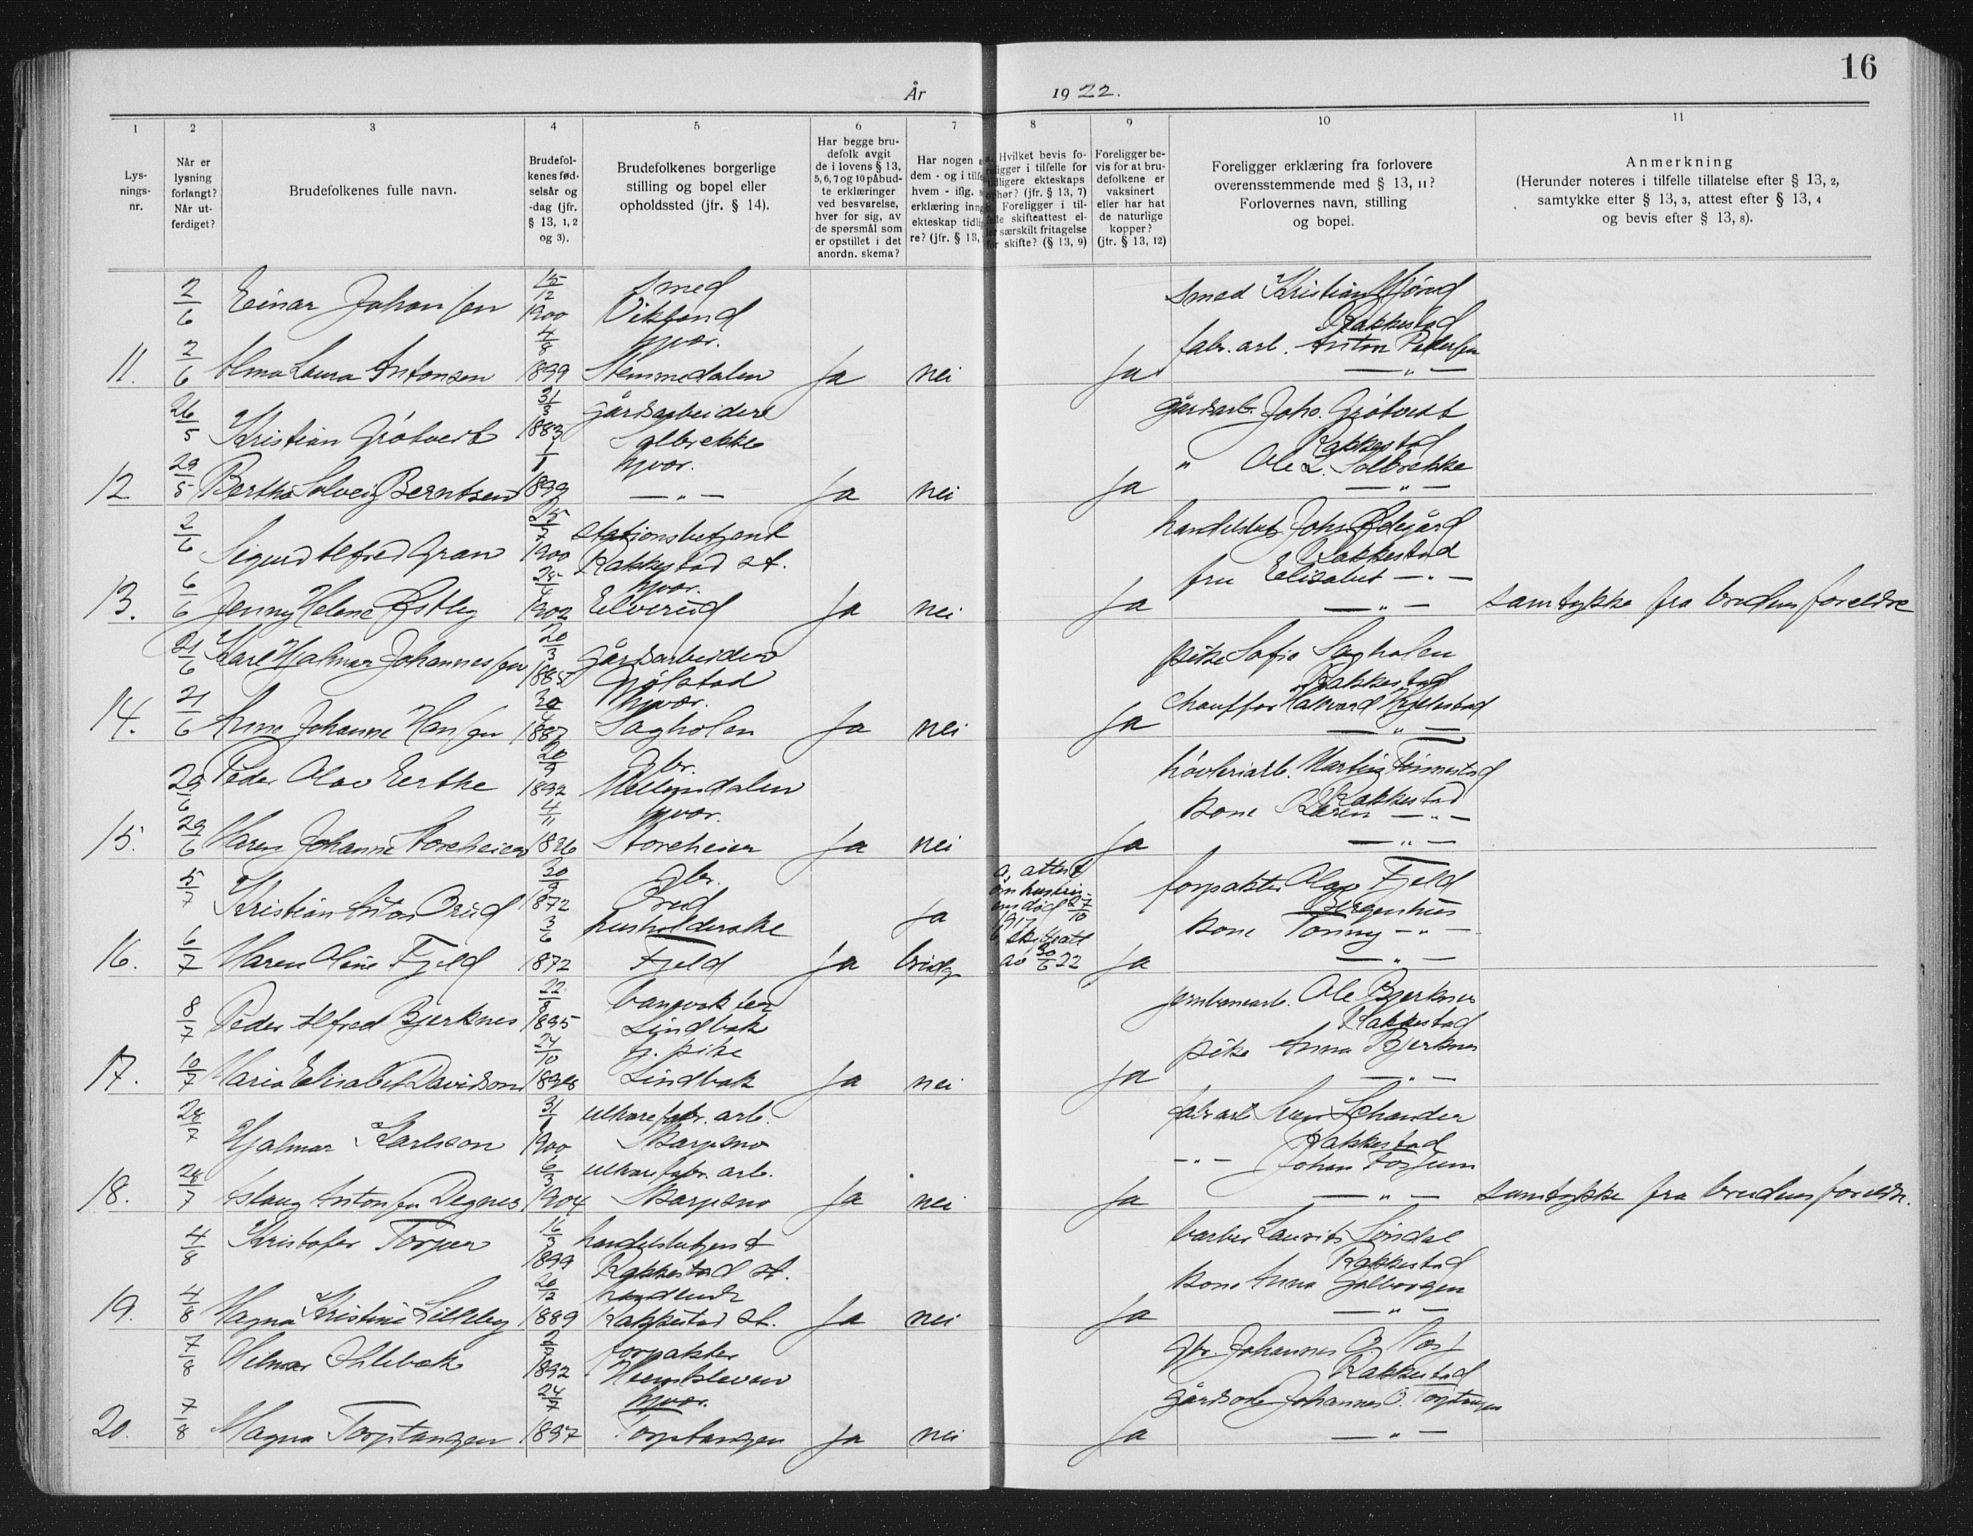 16
År 1922.
1 2 3 4 5 6 7 8 9 10 11
Lys-
nings-
nr.
Når er
lysning
forlangt?
Når ut-
ferdiget?
Brudefolkenes fulle navn.
Brudefol-
kenes fød-
selsår og
-dag (jfr.
§ 13, 1, 2
og 3).
Brudefolkenes borgerlige
stilling og bopel eller
opholdssted (jfr. § 14).
Har begge bru-
defolk avgit
de i lovens § 13,
5, 6, 7 og 10 påbud-
te erklæringer
ved besvarelse,
hver for sig, av
de spørsmål som
er opstillet i det
anordn. skema?
Har nogen
dem - og i tilf
hvem - iflg.
erklæring inng
ekteskap tidl
re? (jfr. § 13,
Hvilket bevis fo-
religger i tilfelle for
tidligere ekteskaps
ophør? (jfr. § 13, 7)
Foreligger i til-
felle skifteattest el-
ler særskilt fritagelse
for skifte? (§ 13, 9)
Foreligger be-
vis for at bru-
defolkene er
vaksinert
eller har hat
de naturlige
kopper?
(jfr. § 13, 12)
Foreligger erklæring fra forlovere
overensstemmende med § 13, 11?
Forlovernes navn, stilling
og bopel.
Anmerkning
(Herunder noteres i tilfelle tillatelse efter § 13, 2,
samtykke efter § 13, 3, attest efter § 13, 4
og bevis efter § 13, 8).
2/6 Einar Johansen 15/12 1900 smed smed Kristian
Rakkestad
hjvør. fabr. arb. Anton Pedersen
11. 2/6 Alma Laura Antonsen 4/8 1899 Stemmedalen Ja nei Ja — " —
26/5 Kristian Grøtvedt 31/3 1883 gårdsarbeider Solbrekke gårdsarb. Johs. Grøtvedt
Rakkestad
hjvør. " Ole L. Solbrekke
12 29/5 Bertha Solveig Berntsen 1/1 1899 — " — Ja nei Ja — " —
2/6 Sigurd Alfred Gran 25/7 1900 stationsbetjent Rakkestad st. handelsbetj. Johs Ødegård
Rakkestad
hjvør. fru Elisabet — " —
13. 6/6 Jenny Helene Østby 1902 Elverud Ja nei Ja — " — samtykke fra brudens foreldre
21/6 Karl Hjalmar Johannessen 20/3 1885 gårdsarbeider pike Sofie Sagholen
Rakkestad
hjvør. chauffør Halvard
14. 21/6 Anna Johanne Hansen 1887 Sagholen Ja nei Ja — " —
29/6 Peder Olav Eertke 20/9 1892 Gbr. høvleriarb.
Rakkestad
hjvør. kone Karen — " —
15. 29/6 Maren Johanne Storeheier 4/11 1896 Storeheier Ja nei Ja — " —
5/7 Kristian Anton Brud 30/9 1872 Gbr. Brud Ja a, attest
om hustru-
ens død 27/10
1917
b, skifteatt
av 30/6 22 forpakter Olav Fjeld
Bergenhus
husholderske kone Tonny — " —
16. 6/7 Maren Oline Fjeld 3/6 1872 Fjeld Ja brudg. Ja — " —
8/7 Peder Alfred Bjerknes 22/8 1895 banevokter Lindbak jernbanearb. Ole Bjerknes
Rakkestad
h. pike pike Anna Bjerknes
17. 10/7 Maria Elisabet Davidsen 24/10 1898 Lindbak Ja nei Ja — " —
28/7 Hjalmar Karlsson 31/1 1900 ulvarefabr. arb. Skarpsno fabr arb
Rakkestad
ulvarefabr. arb. — " — Johan Fosjum
18. 28/7 Aslaug Antonsen Degnes 6/3 1904 Skarpsno Ja nei Ja — " — samtykke fra brudens foreldre.
4/8 Kristofer Torper 16/3 1899 handelsbetjent Rakkestad st. barber Laurits Søndal
Rakkestad
kone Anna
19. 4/8 Magna Kristine Lilleby 20/12 1889 Rakkestad st. Ja nei Ja — " —
7/8 Hilmar Ahlebæk 1892 forpakter gbr. Johannes
Rakkestad
hjvør. Johannes O. Torptangen
20. 7/8 Magna Torptangen 24/7 1897 Torptangen Ja nei Ja — " —